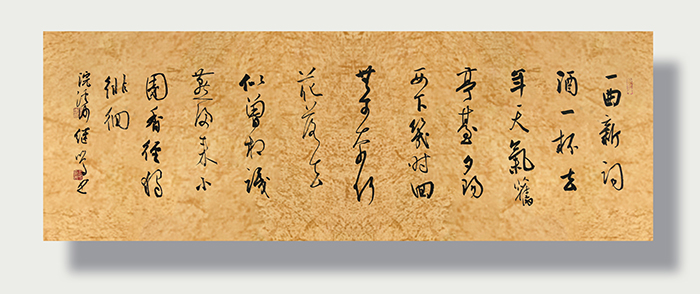 一曲新词
酒一杯去
年天氣舊
亭臺夕陽
西下幾时回
無可奈何
花落去
似曾相识
燕归来小
園香徑獨
徘徊
浣溪沙